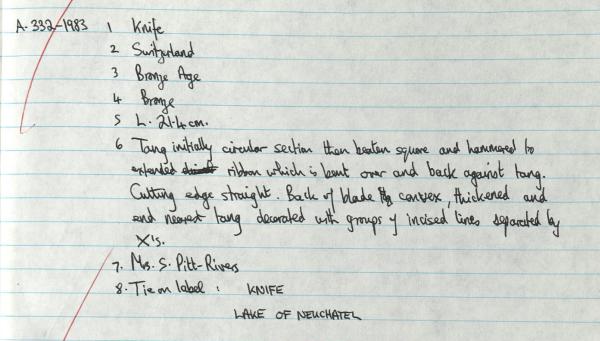 A.332-1983 1 Knife
2 Switzerland
3 Bronze Age
4 Bronze
5 L. 21.4cm.
6 Tang initially circular section then beaten square and hammered to
extended ribbon which is bent over and back against tang.
Cutting edge straight. Back of blade convex, thickened and
end nearest tang decorated with groups of incised lines separated by
X's.
7. Mrs. S. Pitt-Rivers
8. Tie on label: KNIFE
LAKE OF NEUCHATEL